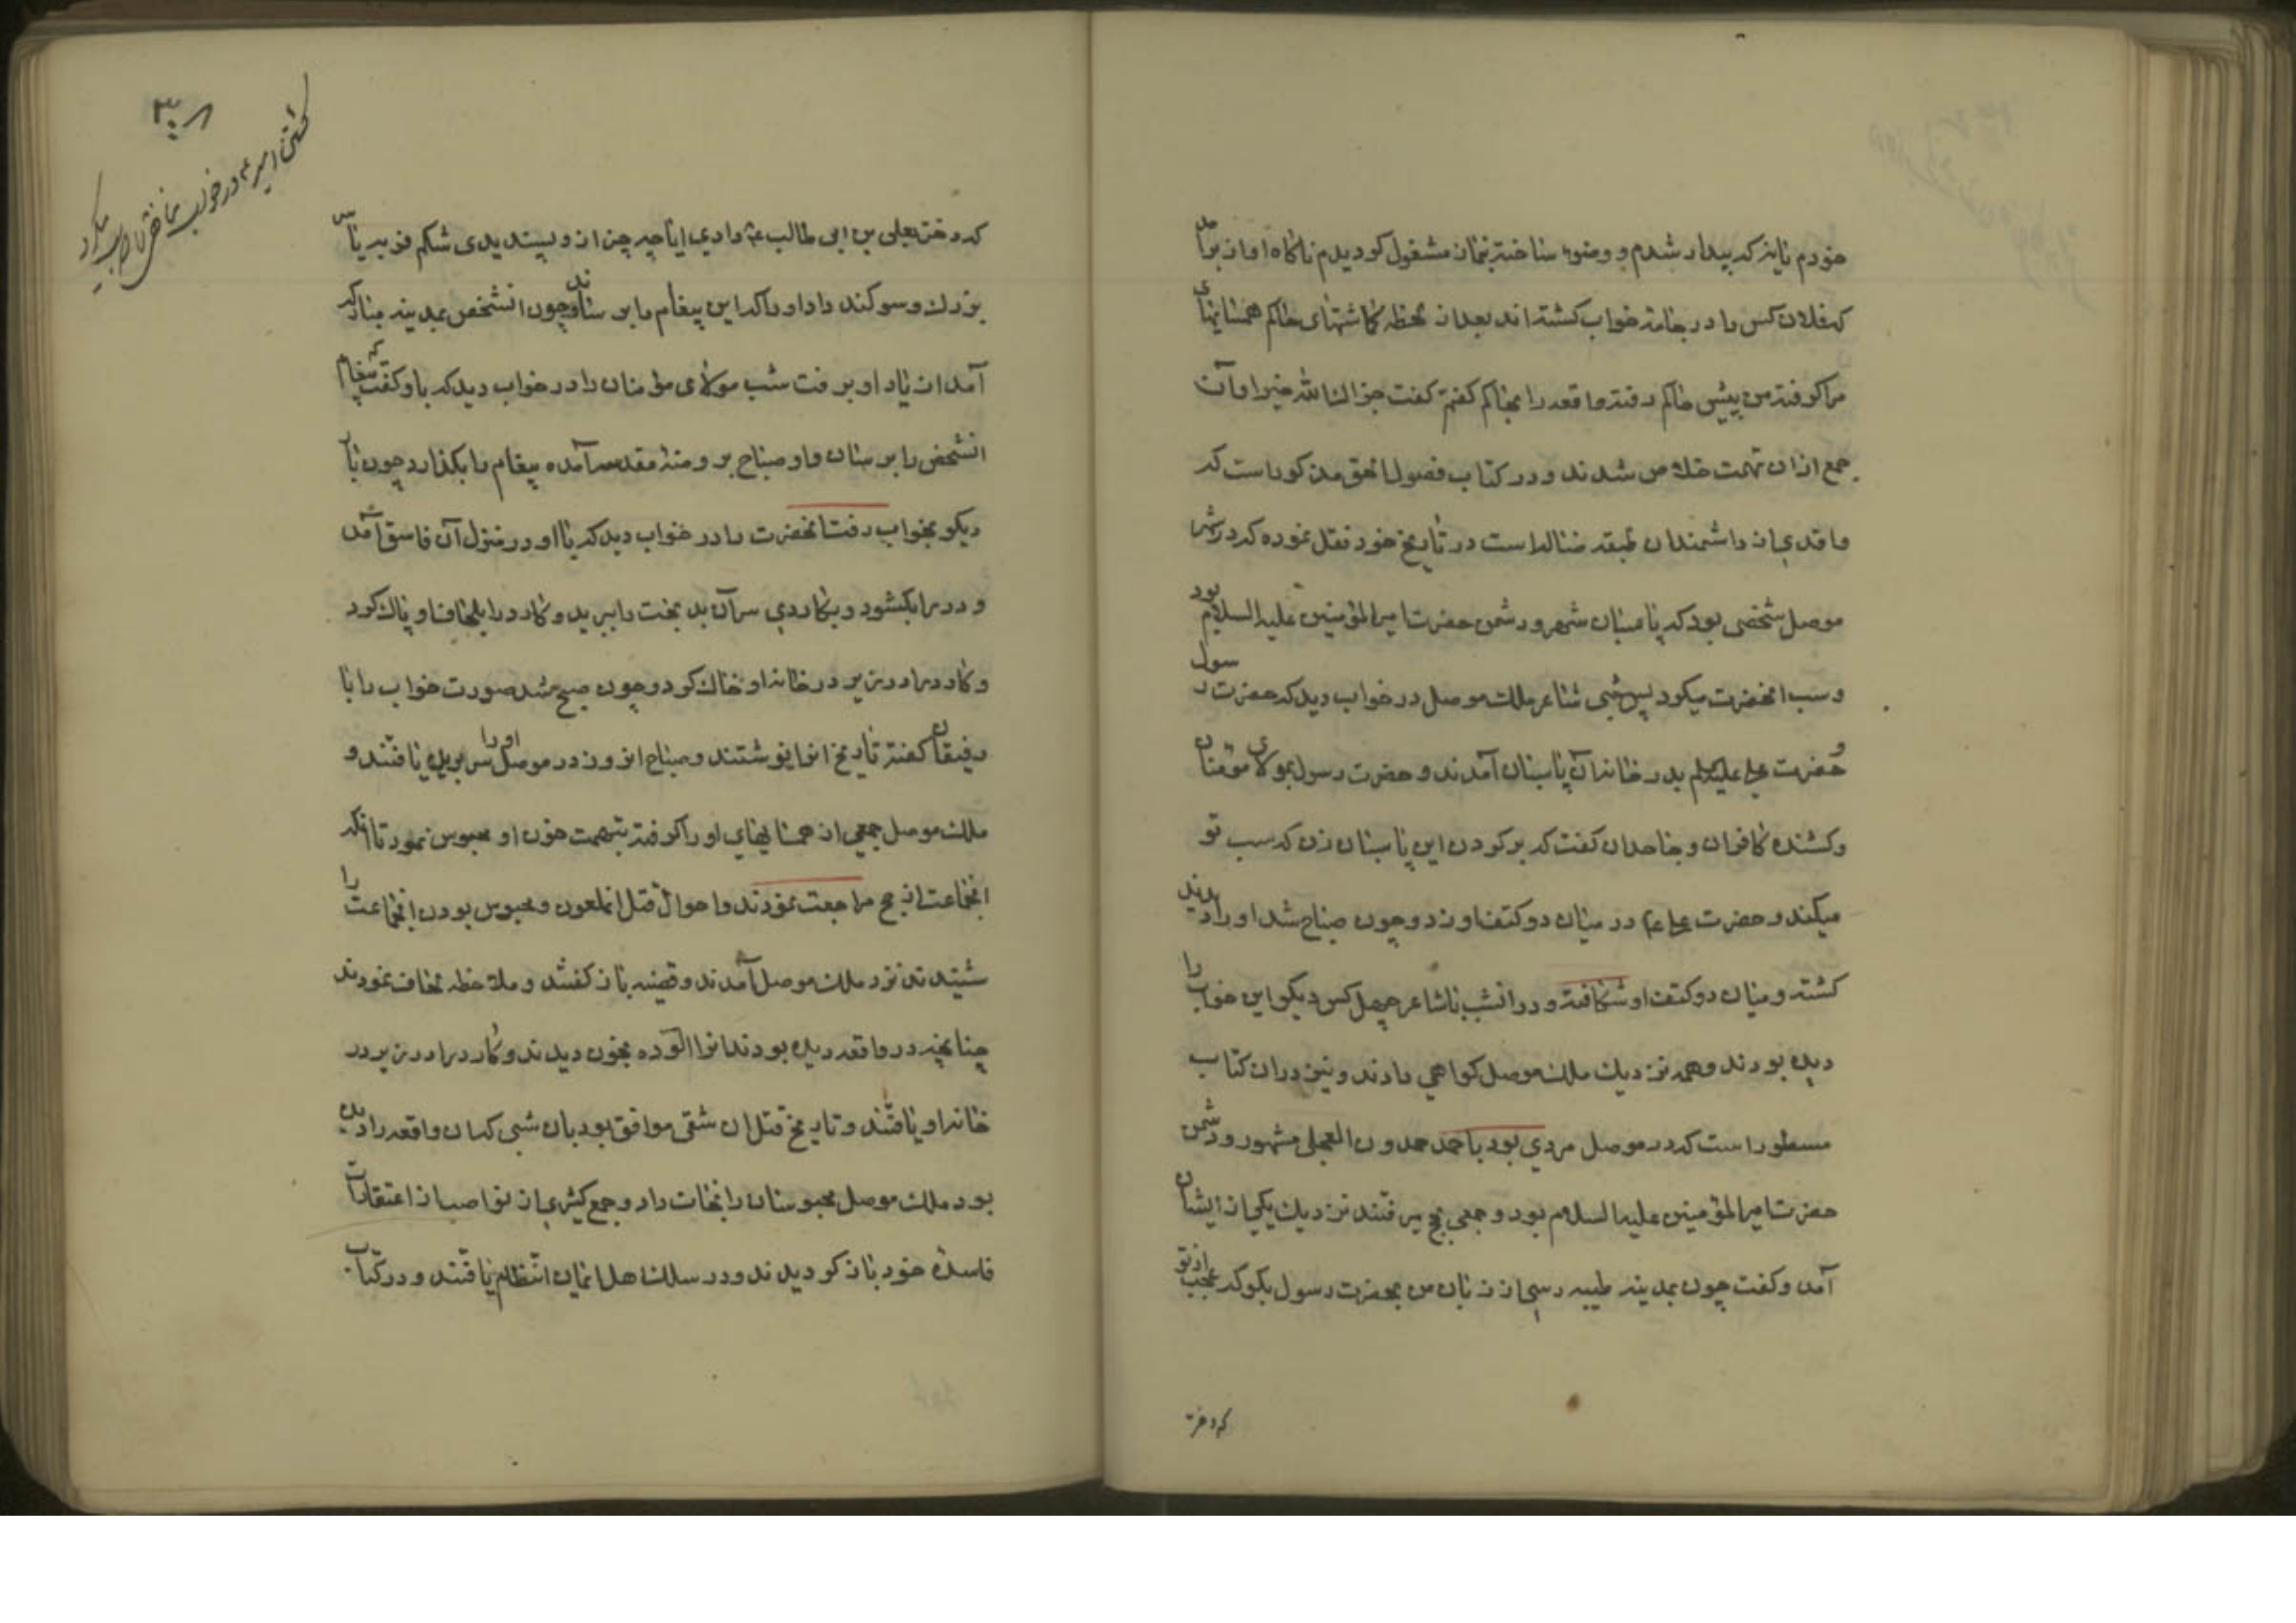 خودم تاینکه بیدار شدم و وضوء ساخته بنماز مشغول کردیدم ناکاه اواز برامد
که فلان کس را در جامه خواب کشته اند بعد از لحظه کماشتهای حاکم همسایهای
مرا کرفته من پیش حاکم رفته واقعه را بحاکم کفتم کفت جزاک الله خیرا و آن
جمع از ان تهمت خلاص شدند و در کتاب فصول الحق مذکور است که
واقدی از دانشمندان طبقه ضاله است در تاریخ خود نقل نموده که در شهر
موصل شخصی بود که پاسبان شهر و دشمن حضرت امیر المؤمنین علیه السلام بود
و سب انحضرت میکرد پس شبی شاعر ملک موصل در خواب دید که حضرت رسول
و حضرت علی علیه السلم بدر خانه آن پاسبان آمدند و حضرت رسول بمولای مؤمنان
و کشنده کافران و جاحدان کفت که بر کردن این پاسبان زن که سب تو
میکند و حضرت علی ع در میان دو کتف او زد و چون صباح شد او را دیدند
کشته و میان دو کتف او شکافته و در انشب با شاعر چهل کس دیکر این خواب را
دیده بودند و همه نزدیک ملک موصل کواهی دادند و نیز در ان کتاب
مسطور است که در موصل مردی بود باحمد حمدون العجلی مشهور و دشمن
حضرت امیر المؤمنین علیه السلام بود و جمعی بحج میرفتند نزدیک یکی از ایشان
آمد و کفت چون بمدینه طیبه رسی از زبان من بحضرت رسول بکو که عجب از تو
که دختر
٣٠٨
کشتن امیر ع در خواب
که دختر بعلی بن ابی طالب ع دادی ایا چه چیز از و پسندیدی شکم فربه یا سر
بزرک و سوکند داد او را که این پیغام را برسان و چون انشخص بمدینه مبارکه
آمد از یاد او برفت شب مولای مؤمنان را در خواب دید که باو کفت که پیغام
انشخص را برسان و او صباح بروضه مقدسه آمده پیغام را بکذارد چون بار
دیکر بخواب رفت انحضرت را در خواب دید که با او در منزل آن فاسق آمد
و در را بکشود و بکاردی سر آن بد بخت را ببرید و کارد را بلحاف او پاک کرد
و کارد را در زیر در خانه او خاک کرد و چون صبح شد صورت خواب را با
رفیقان کفته تاریخ انرا نوشتند و صباح انروز در موصل او را سر بریده یافتند و
ملک موصل جمعی از همسایهای او را کرفته بتهمت خون او محبوس نمود تا انکه
انجماعت از حج مراجعت نمودند و احوال قتل انملعون و محبوس بودن انجماعت را
شنیدند نزد ملک موصل آمدند و قضیه باز کفتند و ملاحظه لحاف نمودند
چنانچه در واقعه دیده بودند انرا الوده بخون دیدند و کارد را در زیر در
خانه او یافتند و تاریخ قتل ان شقی موافق بود بان شبی که ان واقعه را دیده
بود ملک موصل محبوسان را نجات داد و جمع کثیری از نواصب از اعتقادات
فاسده خود باز کردیدند و در سلک اهل ایمان انتظام یافتند و در کتاب